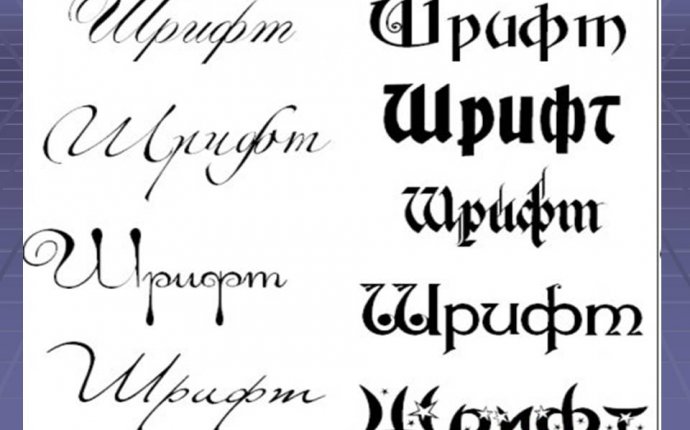 Шрифт
Шрифт
Шрифт
Шрифт
Шрифт
Шрифт
Шрифт
Шрифт
Шрифт